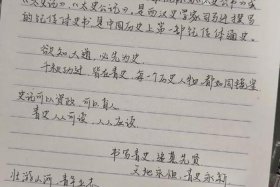 《史记》,《太史公记》,是西汉史学家司马迁撰写
的纪传体史书,是中国历史上第一部纪传体通史。
欲知大道,必先为史。
千秋功过,皆在青史,每一个历史人物都如同璀璨
史记可以资政,可以育人
青史人人可读,人人应读
书写青史 追慕先贤
天地永恒,青史永新
壮游山河,青年